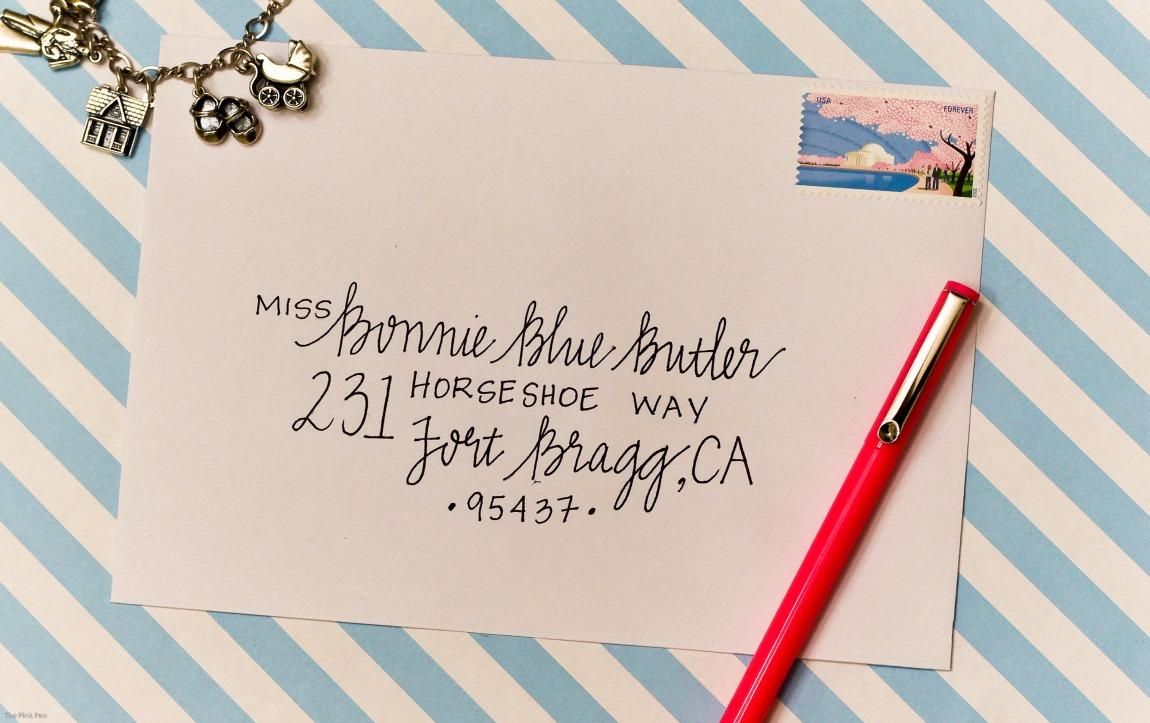 USA FOREVER
MISS Bonnie Blue Butler
231 HORSESHOE WAY
Fort Bragg, CA
• 95437 •
The Pink Pen